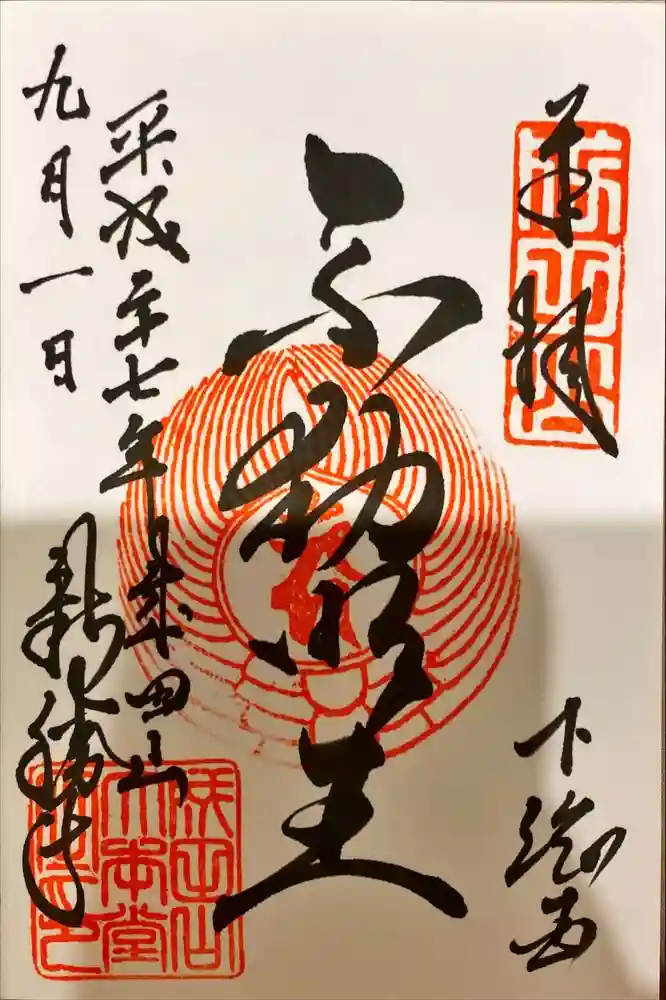 奉拝
下総國
不動明王
平成二十七年成田山
九月一日
新勝寺
成田山
大本堂